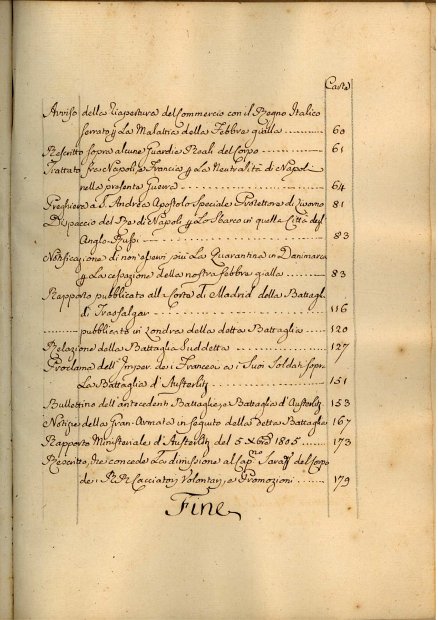 Carta
Avviso della riapertura del Commercio con il Regno Italico
serrato p. La Malattia della Febbre gialla 60
Rescritto sopra alcune Guardie Reali del Corpo 61
Trattato fra Napoli, e Francia p. La Neutralità di Napoli
nella presente Guerra 64
Preghiera a S. Andrea Apostolo Speciale Protettore di 81
Dispaccio del Re di Napoli p. Lo Sbarco in quella Città degl
Anglo-Russi 83
Notificazione di non esservi più La Quarantina in Danimarca
p. La cessazione della nostra febbre gialla 83
Rapporto pubblicato alla Corte di Madrid della Battaglia
di Trafalgar 116
pubblicato in Londra della detta Battaglia 120
Relazione della Battaglia Suddetta 127
Proclama dell' Imper. de' Francesi a' Suoi Soldati sopra
La Battaglia d'Austerlitz 151
Bullettino dell' antecedenti Battaglie, e Battaglia d'Austerlitz 153
Notizie della Gran-Armata in seguito della detta Battaglia 167
Rapporto Ministeriale d'Austerlitz del 5 Xbre 1805 173
Rescritto, che concede La dimissione al Cap.no del Corpo
de' RR. Cacciatori Volontari, e Promozioni 179
Fine